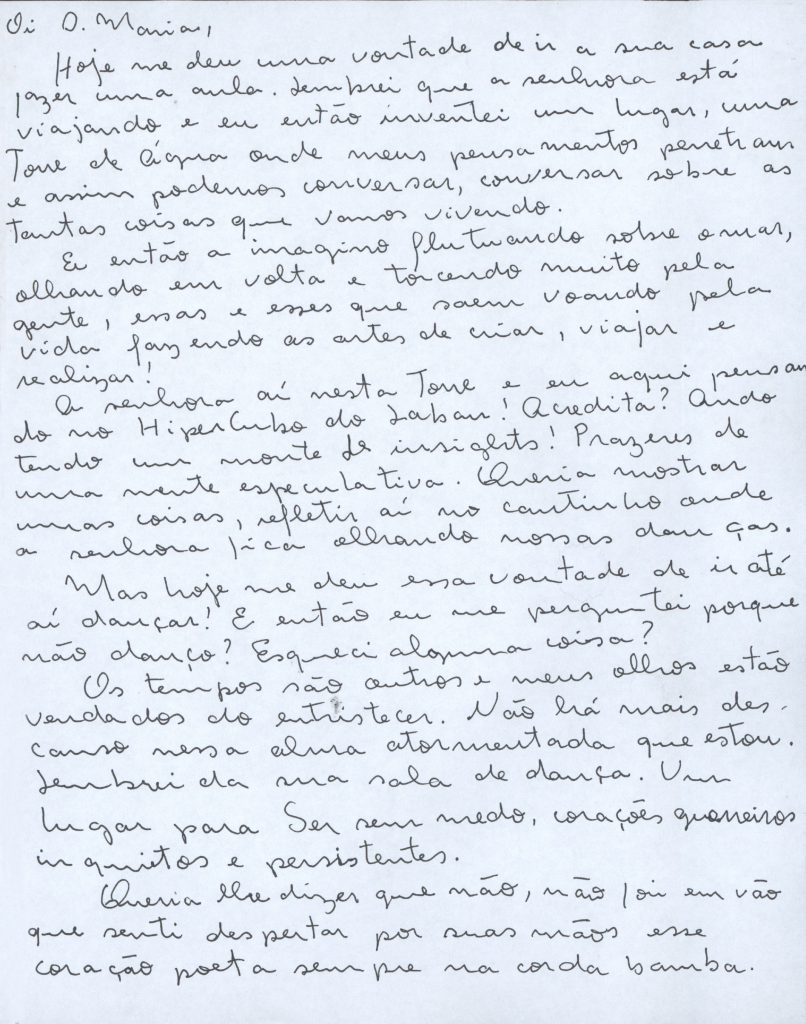 Oi D. Maria,
Hoje me deu uma vontade de ir a sua casa
fazer uma aula. Lembrei que a senhora está
viajando e eu então inventei um lugar, uma
Torre de Água onde meus pensamentos penetram
e assim podemos conversar, conversar sobre as
tantas coisas que vamos vivendo.
Eu então a imagino flutuando sobre o mar,
olhando em volta e torcendo muito pela
gente, essas e esses que saem voando pela
vida fazendo as artes de criar, viajar e
realizar!
A senhora aí nesta Torre e eu aqui pensan
do no HiperCubo do Laban! Acredita? Ando
tendo um monte de insights! Prazeres de
uma mente especulativa. Queria mostrar
umas coisas, refletir aí no cantinho onde
a senhora fica olhando nossas danças.
Mas hoje me deu essa vontade de ir até
aí dançar! E então eu me perguntei porque
não danço? Esqueci alguma coisa?
Os tempos são outros e meus olhos estão
vendados do entristecer. Não há mais des-
canso nessa alma atormentada que estou.
Lembrei da sua sala de dança. Um
lugar para Ser sem medo, corações guerreiros
inquietos e persistentes.
Queria lhe dizer que não, não foi em vão
que senti despertar por suas mãos esse
coração poeta sempre na corda bamba.